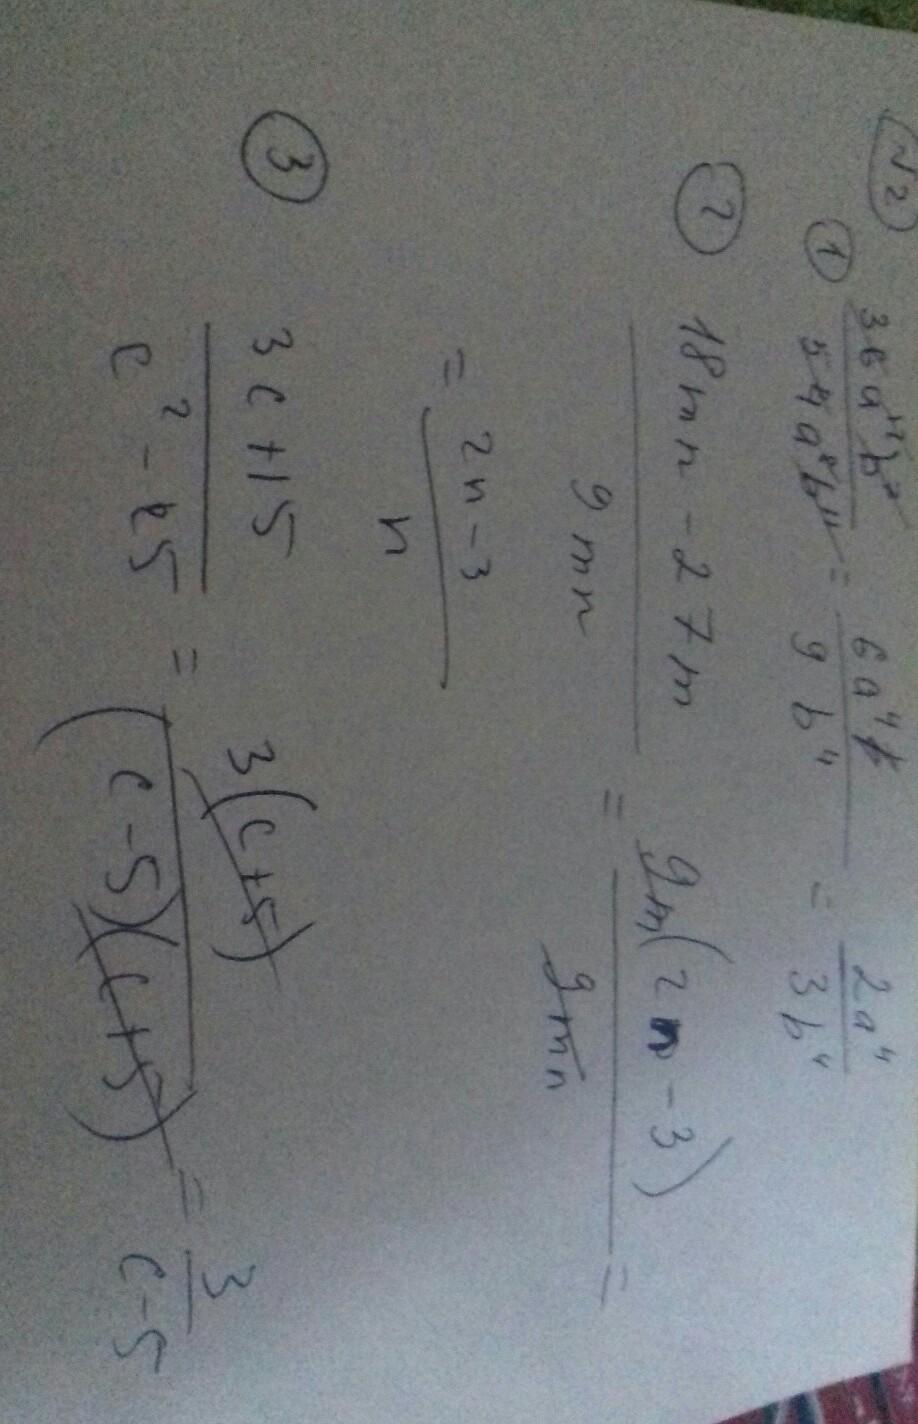 N2
① 36a¹²b⁷ / 54a⁸b¹¹ = 6a⁴ / 9b⁴ = 2a⁴ / 3b⁴
② 18mn - 27m / 9mn = 9m(2n - 3) / 9mn =
= 2n - 3 / n
③ 3c + 15 / c² - 25 = 3(c+5) / (c-5)(c+5) = 3 / c-5